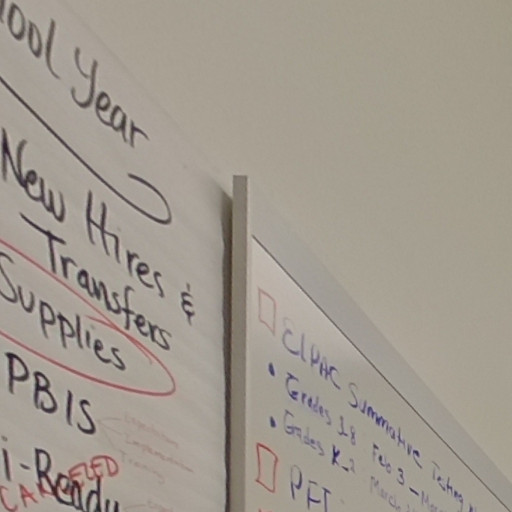 ool Year
New Hires &
Transfers
Supplies
PBIS
i-Ready
CANCELED
ELPAC Summative Testing
• Grades 3-8 Feb 3 - Mar
• Grades K-2 March
PFT